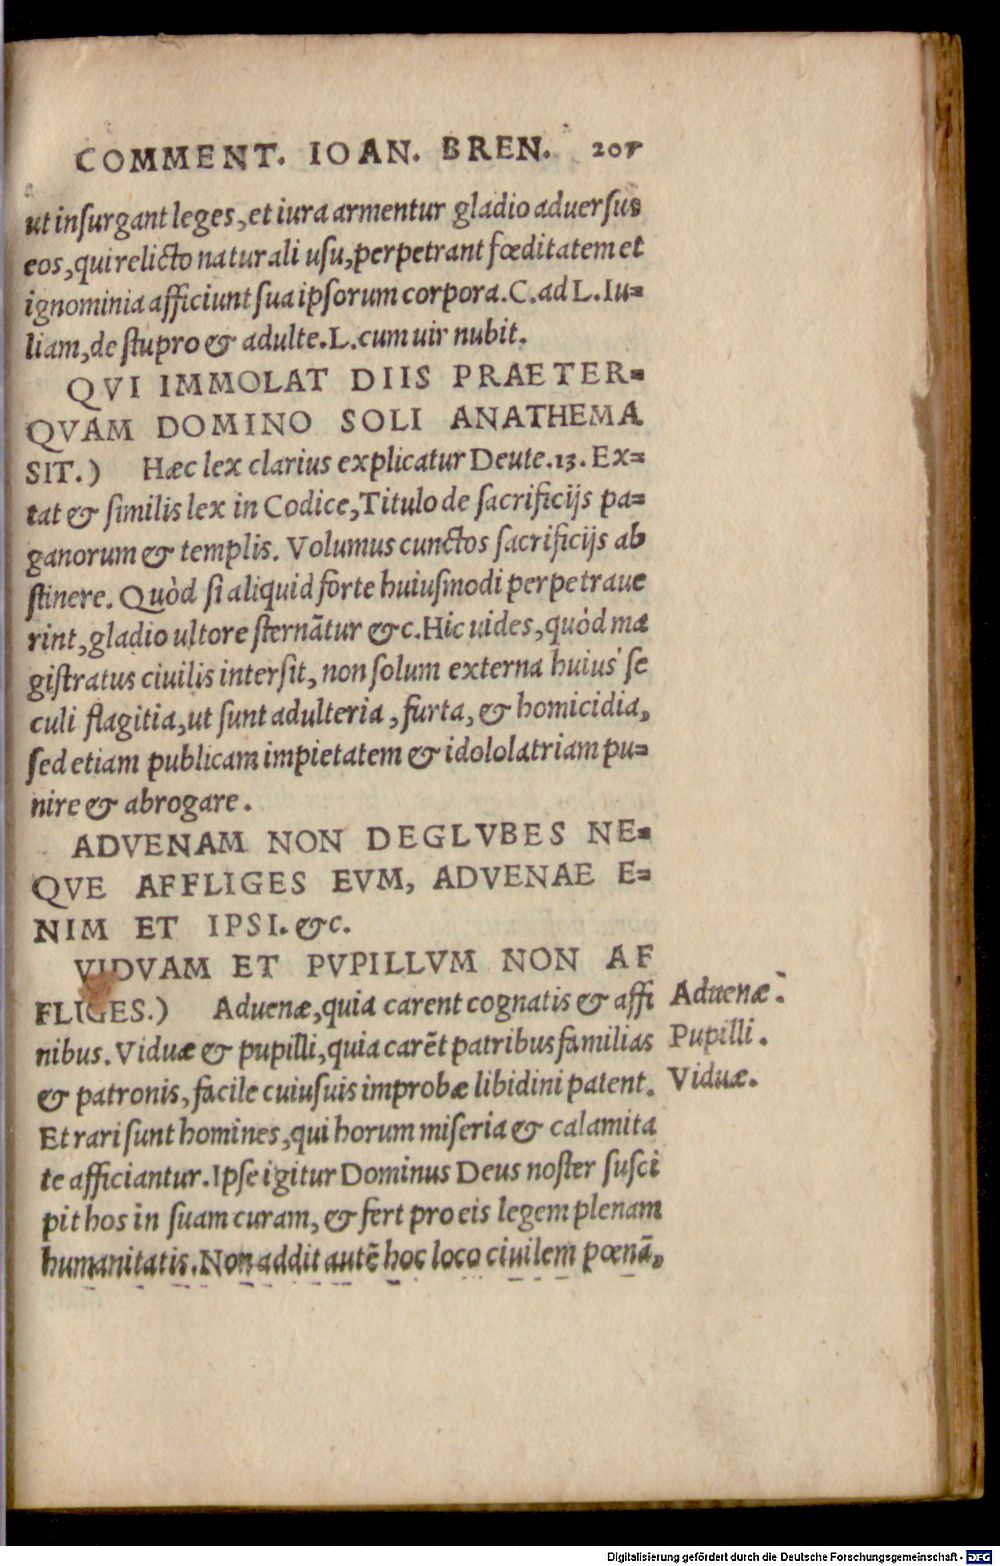 COMMENT. IOAN. BREN. 205
ut insurgant leges, et iura armentur gladio aduersus
eos, qui relicto naturali usu, perpetrant fœditatem et
ignominia afficiunt sua ipsorum corpora. C. ad L. Iu=
liam, de stupro & adulte. L. cum uir nubit.
QVI IMMOLAT DIIS PRAETER=
QVAM DOMINO SOLI ANATHEMA
SIT.) Hæc lex clarius explicatur Deute. 13. Ex=
tat & similis lex in Codice, Titulo de sacrificijs pa=
ganorum & templis. Volumus cunctos sacrificijs ab
stinere. Quòd si aliquid forte huiusmodi perpetraue
rint, gladio ultore sternātur &c. Hic uides, quòd ma
gistratus ciuilis intersit, non solum externa huius se
culi flagitia, ut sunt adulteria, furta, & homicidia,
sed etiam publicam impietatem & idololatriam pu=
nire & abrogare.
ADVENAM NON DEGLVBES NE=
QVE AFFLIGES EVM, ADVENAE E=
NIM ET IPSI. &c.
VIDVAM ET PVPILLVM NON AF
FLIGES.) Aduenæ, quia carent cognatis & affi
nibus. Viduæ & pupilli, quia carēt patribus familias
& patronis, facile cuiusuis improbæ libidini patent.
Et rari sunt homines, qui horum miseria & calamita
te afficiantur. Ipse igitur Dominus Deus noster susci
pit hos in suam curam, & fert pro eis legem plenam
humanitatis. Non addit autē hoc loco ciuilem pœnā,
Aduenæ.
Pupilli.
Viduæ.
Digitalisierung gefördert durch die Deutsche Forschungsgemeinschaft - DFG